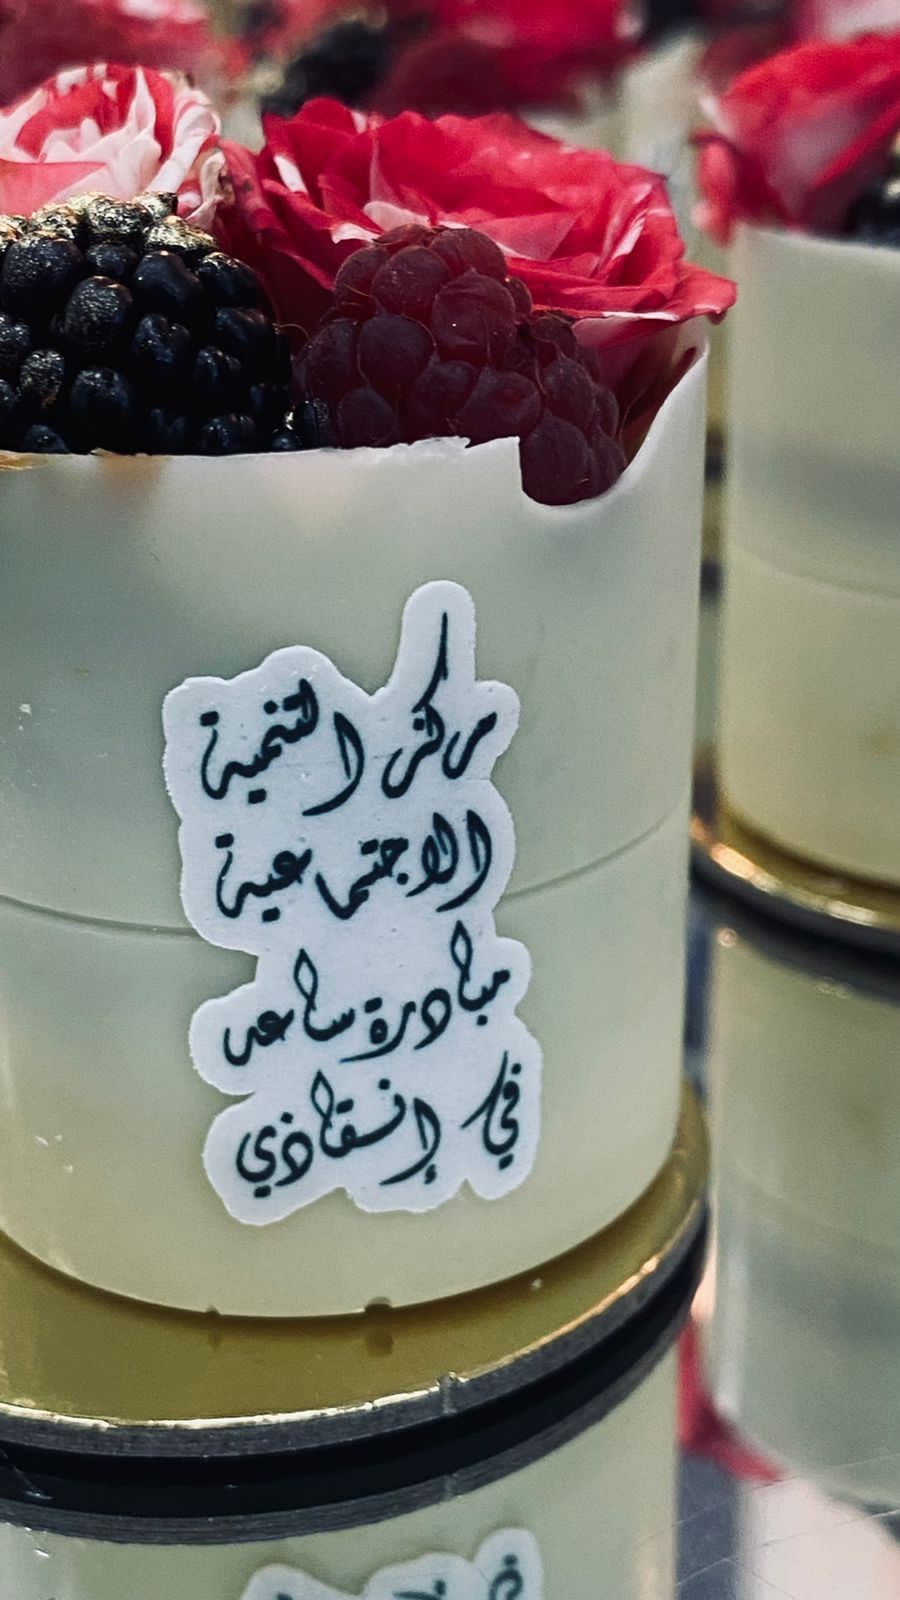 مركز التنمية
الاجتماعية
مبادرة ساعد
في إنقاذي